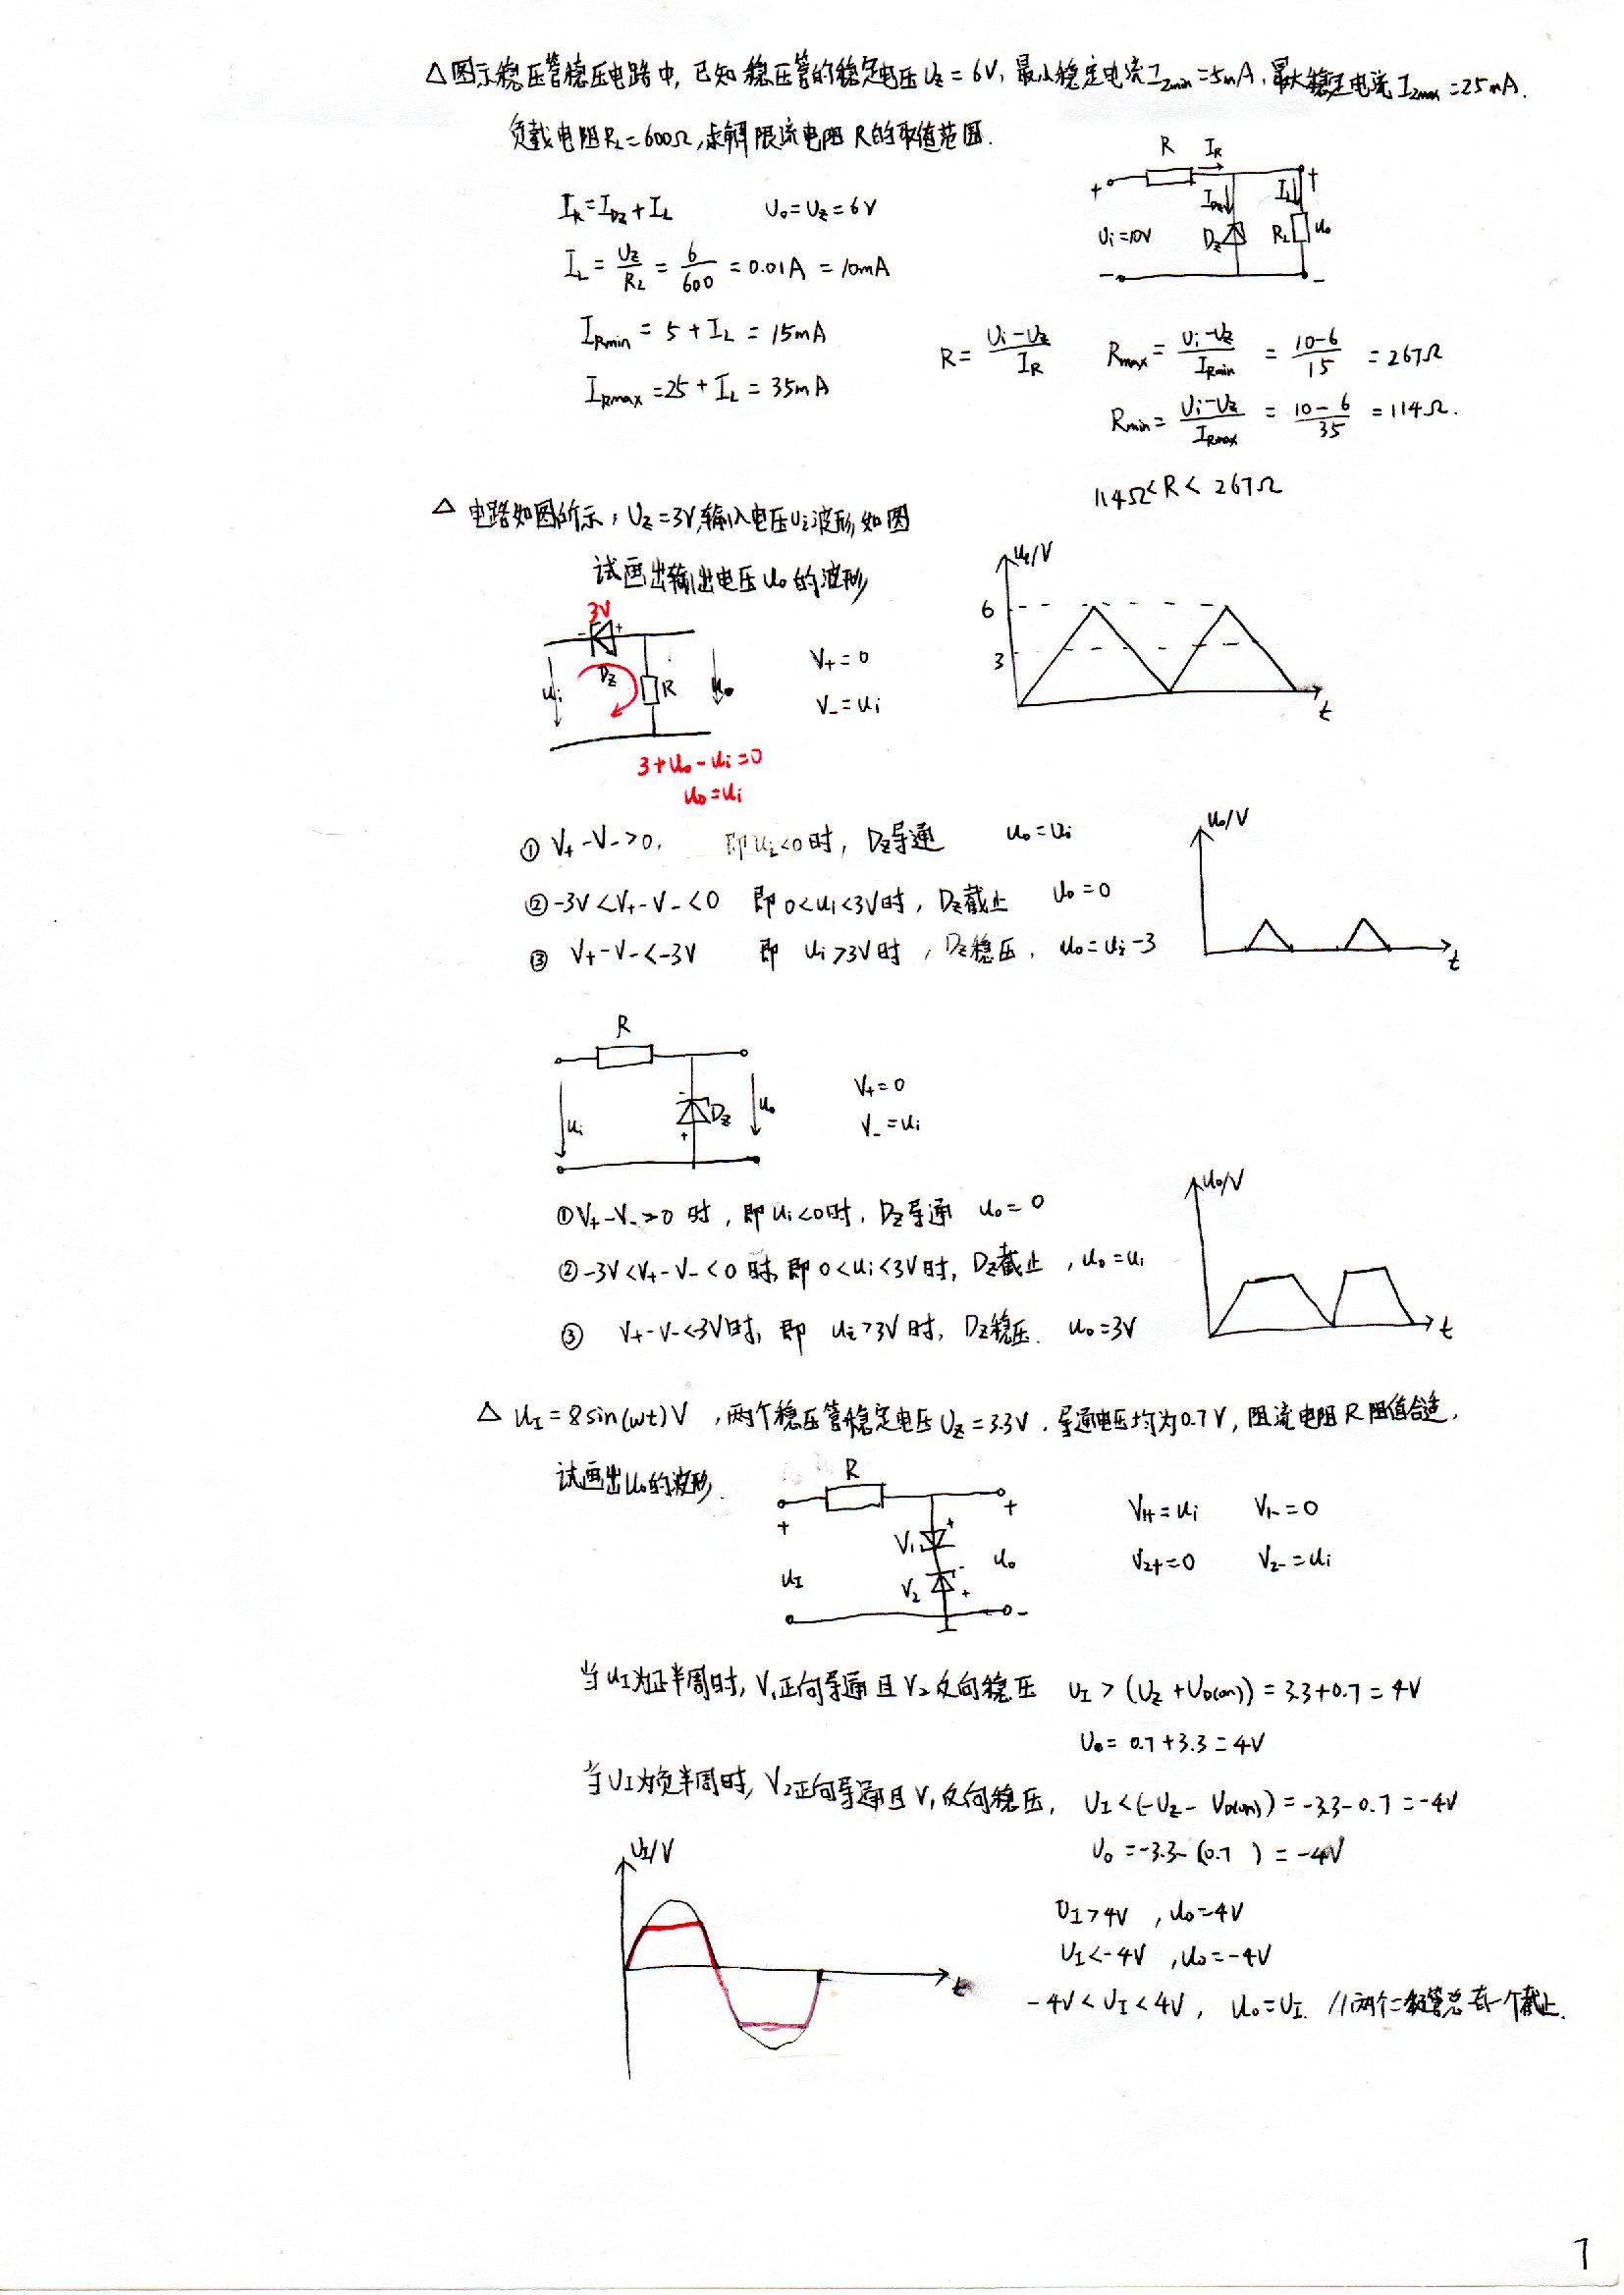 △图示稳压管稳压电路中,已知稳压管的稳定电压Uz=6V,最小稳定电流Izmin=5mA,最大稳定电流Izmax=25mA.
负载电阻RL=600Ω,求解限流电阻R的取值范围.
R IR
+ IDz IL +
Ui=10V Dz RL uo
- -
IR=IDz+IL Uo=Uz=6V
IL=Uz/RL=6/600=0.01A=10mA
IRmin=5+IL=15mA
IRmax=25+IL=35mA
R=Ui-Uz/IR Rmax=Ui-Uz/IRmin=10-6/15=267Ω
Rmin=Ui-Uz/IRmax=10-6/35=114Ω.
114Ω<R<267Ω
△ 电路如图所示,Uz=3V,输入电压ui波形如图
试画出输出电压uo的波形
3V
- +
Dz
ui R uo
3+uo-ui=0
uo=ui
V+=0
V-=ui
ui/V
6
3
t
① V+-V->0, 即ui<0时,Dz导通 uo=ui
② -3V<V+-V-<0 即0<ui<3V时,Dz截止 uo=0
③ V+-V-<-3V 即 ui>3V时,Dz稳压, uo=ui-3
uo/V
t
R
ui - Dz + uo
V+=0
V-=ui
① V+-V->0 时,即ui<0时,Dz导通 uo=0
② -3V<V+-V-<0 时,即0<ui<3V时,Dz截止,uo=ui
③ V+-V-<-3V时,即 ui>3V时,Dz稳压. uo=3V
uo/V
t
△ uI=8sin(wt)V ,两个稳压管稳定电压Uz=3.3V.导通电压均为0.7V,限流电阻R阻值合适,
试画出uo的波形.
R
+ +
V1 +
uI uo
V2 - +
-
V1+=ui V1-=0
V2+=0 V2-=ui
当uI为正半周时,V1正向导通且V2反向稳压 UI>(Uz+UD(on))=3.3+0.7=4V
Uo=0.7+3.3=4V
当UI为负半周时,V2正向导通且V1反向稳压, UI<(-Uz-UD(on))=-3.3-0.7=-4V
Uo=-3.3-(0.7 )=-4V
UI/V
t
UI>4V ,uo=4V
UI<-4V ,uo=-4V
-4V<UI<4V, uo=UI. //两个二极管总有一个截止.
7